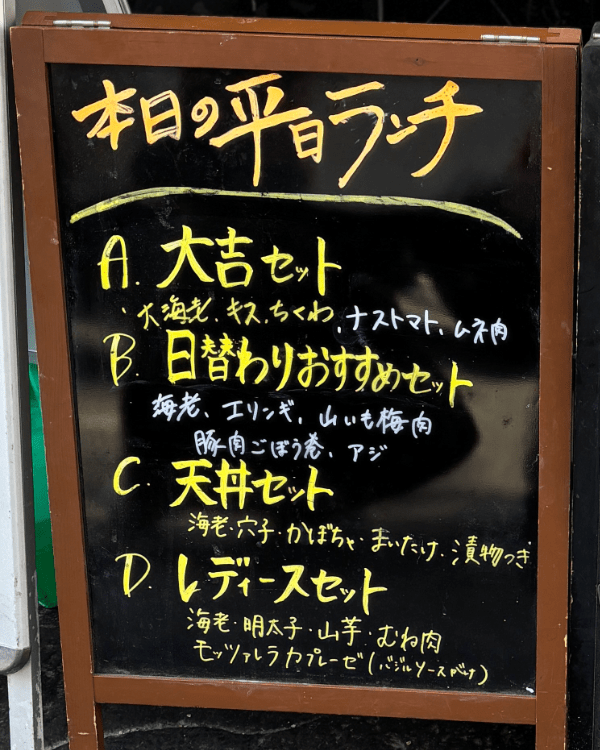 本日の平日ランチ
A. 大吉セット
・大海老、キス、ちくわ、ナストマト、ムネ肉
B. 日替わりおすすめセット
海老、エリンギ、山いも梅肉
豚肉ごぼう巻、アジ
C. 天丼セット
海老・穴子・かぼちゃ・まいたけ・漬物つき
D. レディースセット
海老・明太子・山芋・むね肉
モッツァレラカプレーゼ(バジルソースがけ)